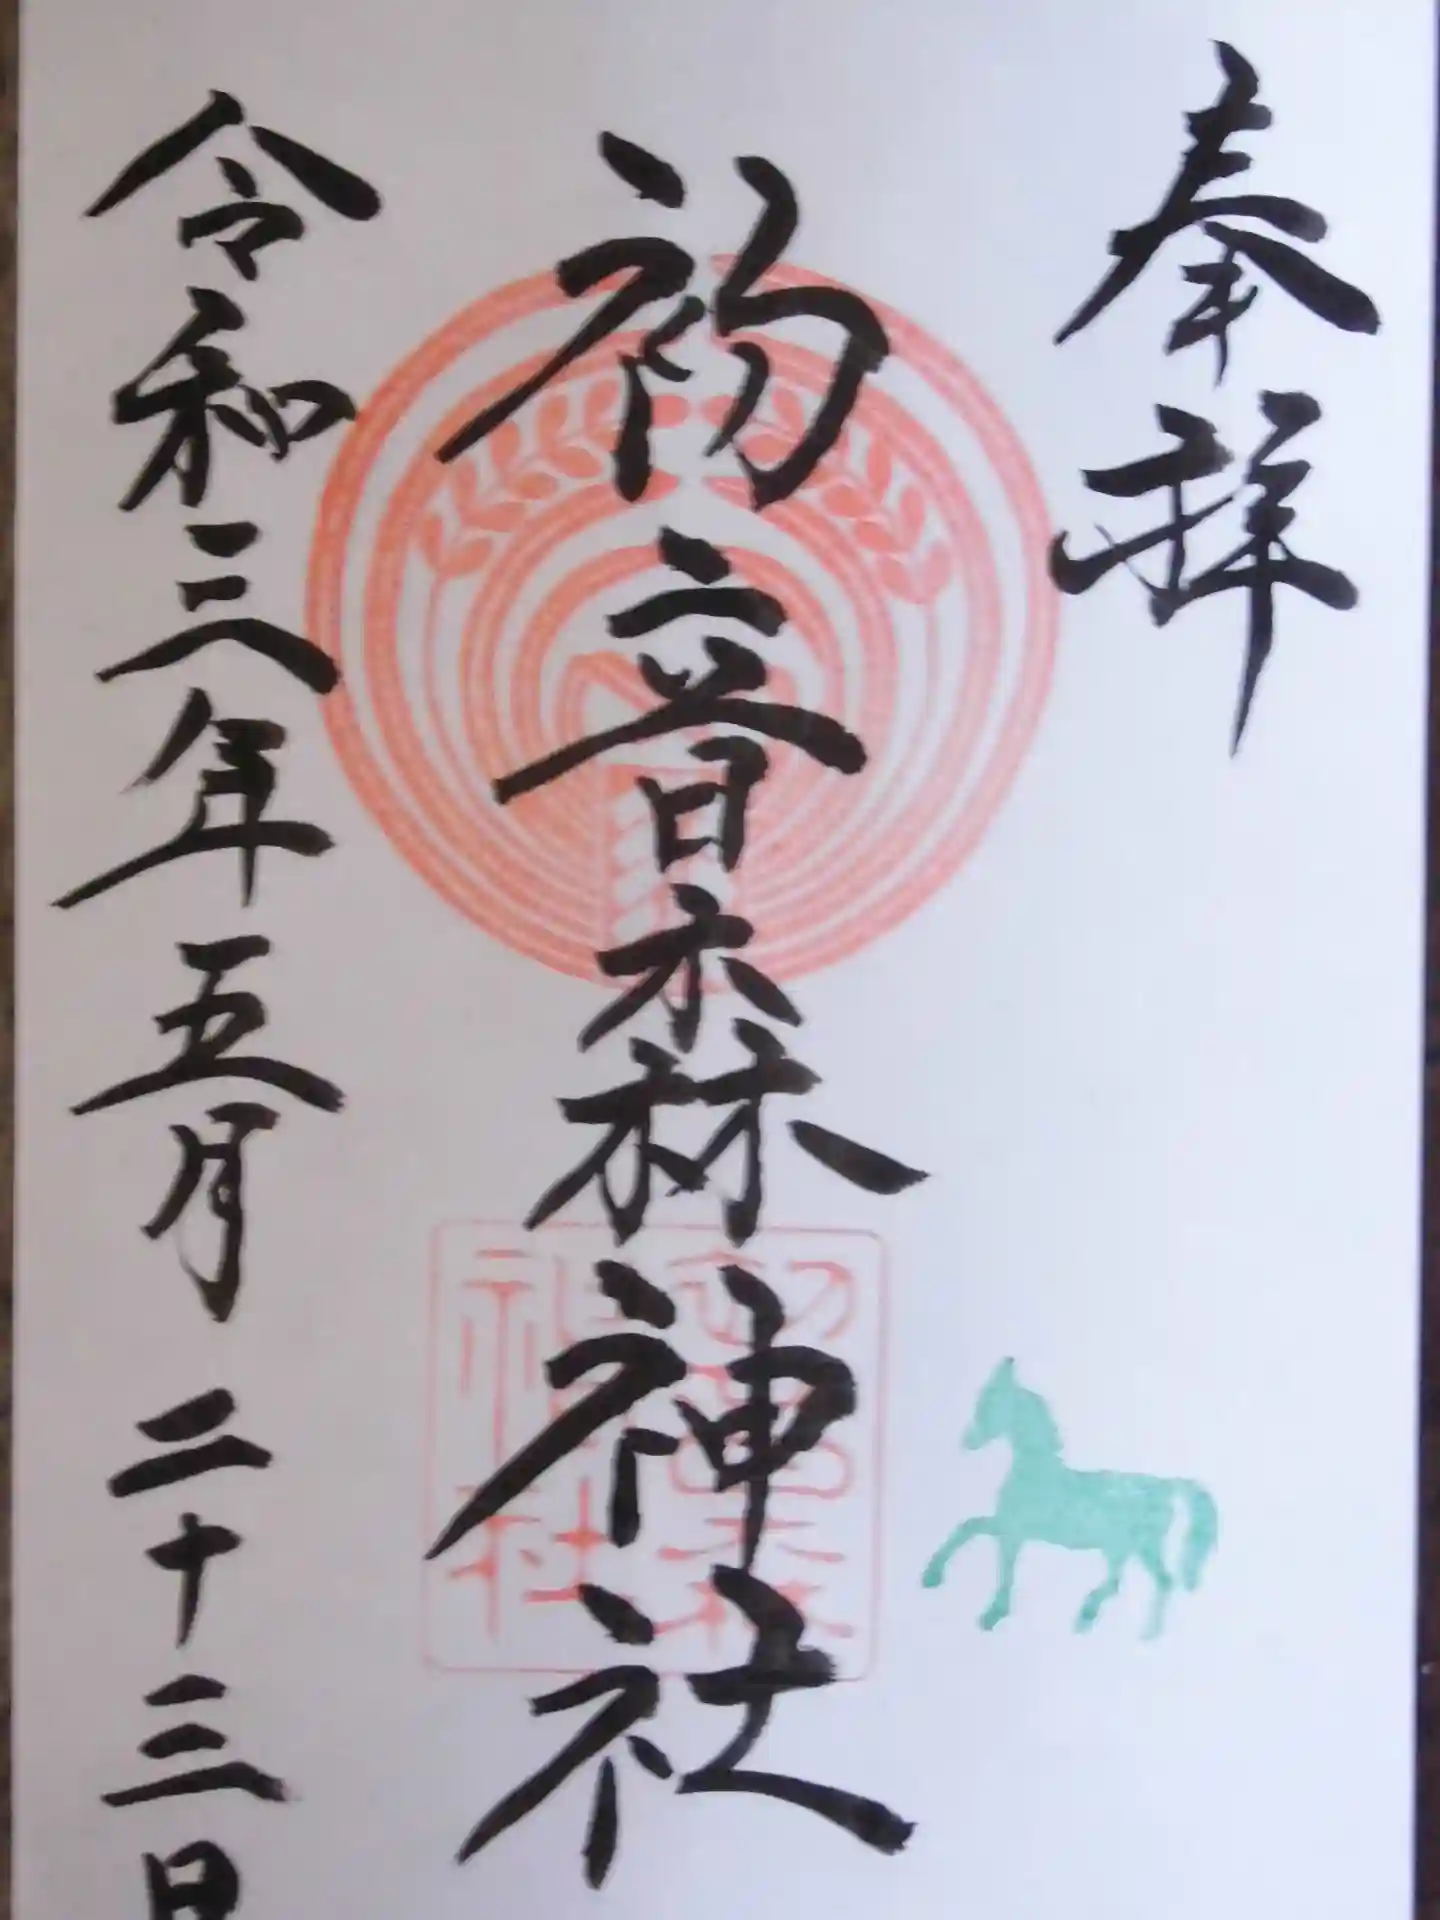 奉拝
初音森神社
初音森神社
令和三年五月二十三日